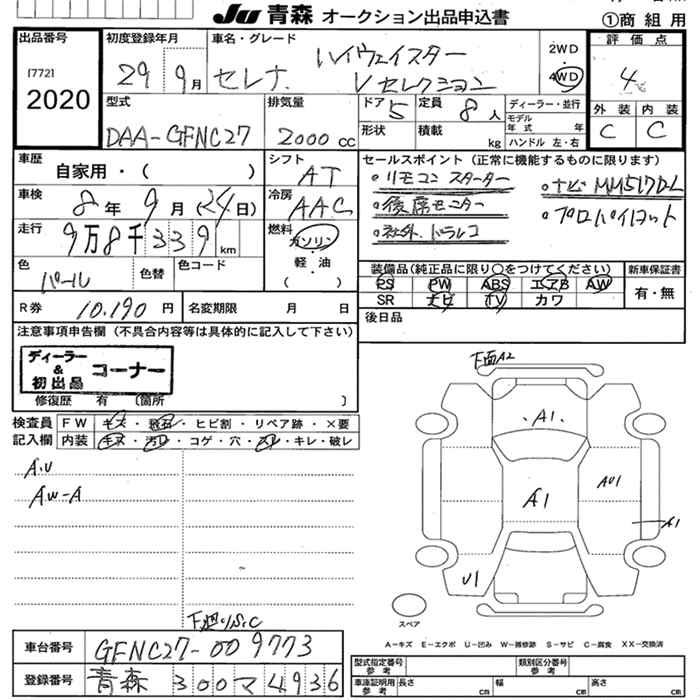 JU 青森 オークション出品申込書
①商組用
出品番号
[772]
2020
初度登録年月
29 9月
車名・グレード
セレナ
ハイウェイスター
Vセレクション
2WD
4WD
評価点
4
外装 内装
C C
型式
DAA-GFNC27
排気量
2000cc
ドア 5
定員 8人
形状
積載 kg
ディーラー・並行
モデル年式 年
ハンドル 左・右
車歴
自家用・( )
シフト
AT
車検
8年9月(24日)
冷房
AAC
走行
9万8千339km
燃料
ガソリン
・軽・油
( )
色
パール
色替
色コード
R券 10,190円
名変期限 月 日
セールスポイント(正常に機能するものに限ります)
・リモコンスターター
・ナビ MM517D-L
・後席モニター
・プロパイロット
・社外ドラレコ
装備品(純正品に限り○をつけてください)
PS PW ABS エアB AW
SR ナビ TV カワ
新車保証書
有・無
後日品
注意事項申告欄(不具合内容等は具体的に記入して下さい)
ディーラー & 初出品 コーナー
修復歴 有 (箇所 )
検査員記入欄
FW キズ・飛石・ヒビ割・リペア跡・×要
内装 キズ・汚れ・コゲ・穴・スレ・キレ・破レ
A.U
AW-A
下廻りS.C
下面A2
A1
A1
AU1
A1
U1
スペア
A-キズ E-エクボ U-凹み W-補修跡 S-サビ C-腐食 XX-交換済
車台番号
GFNC27-009773
登録番号
青森 300 マ 4936
型式指定番号 参考
類別区分番号 参考
車庫証明用 参考
長さ cm 幅 cm 高さ cm